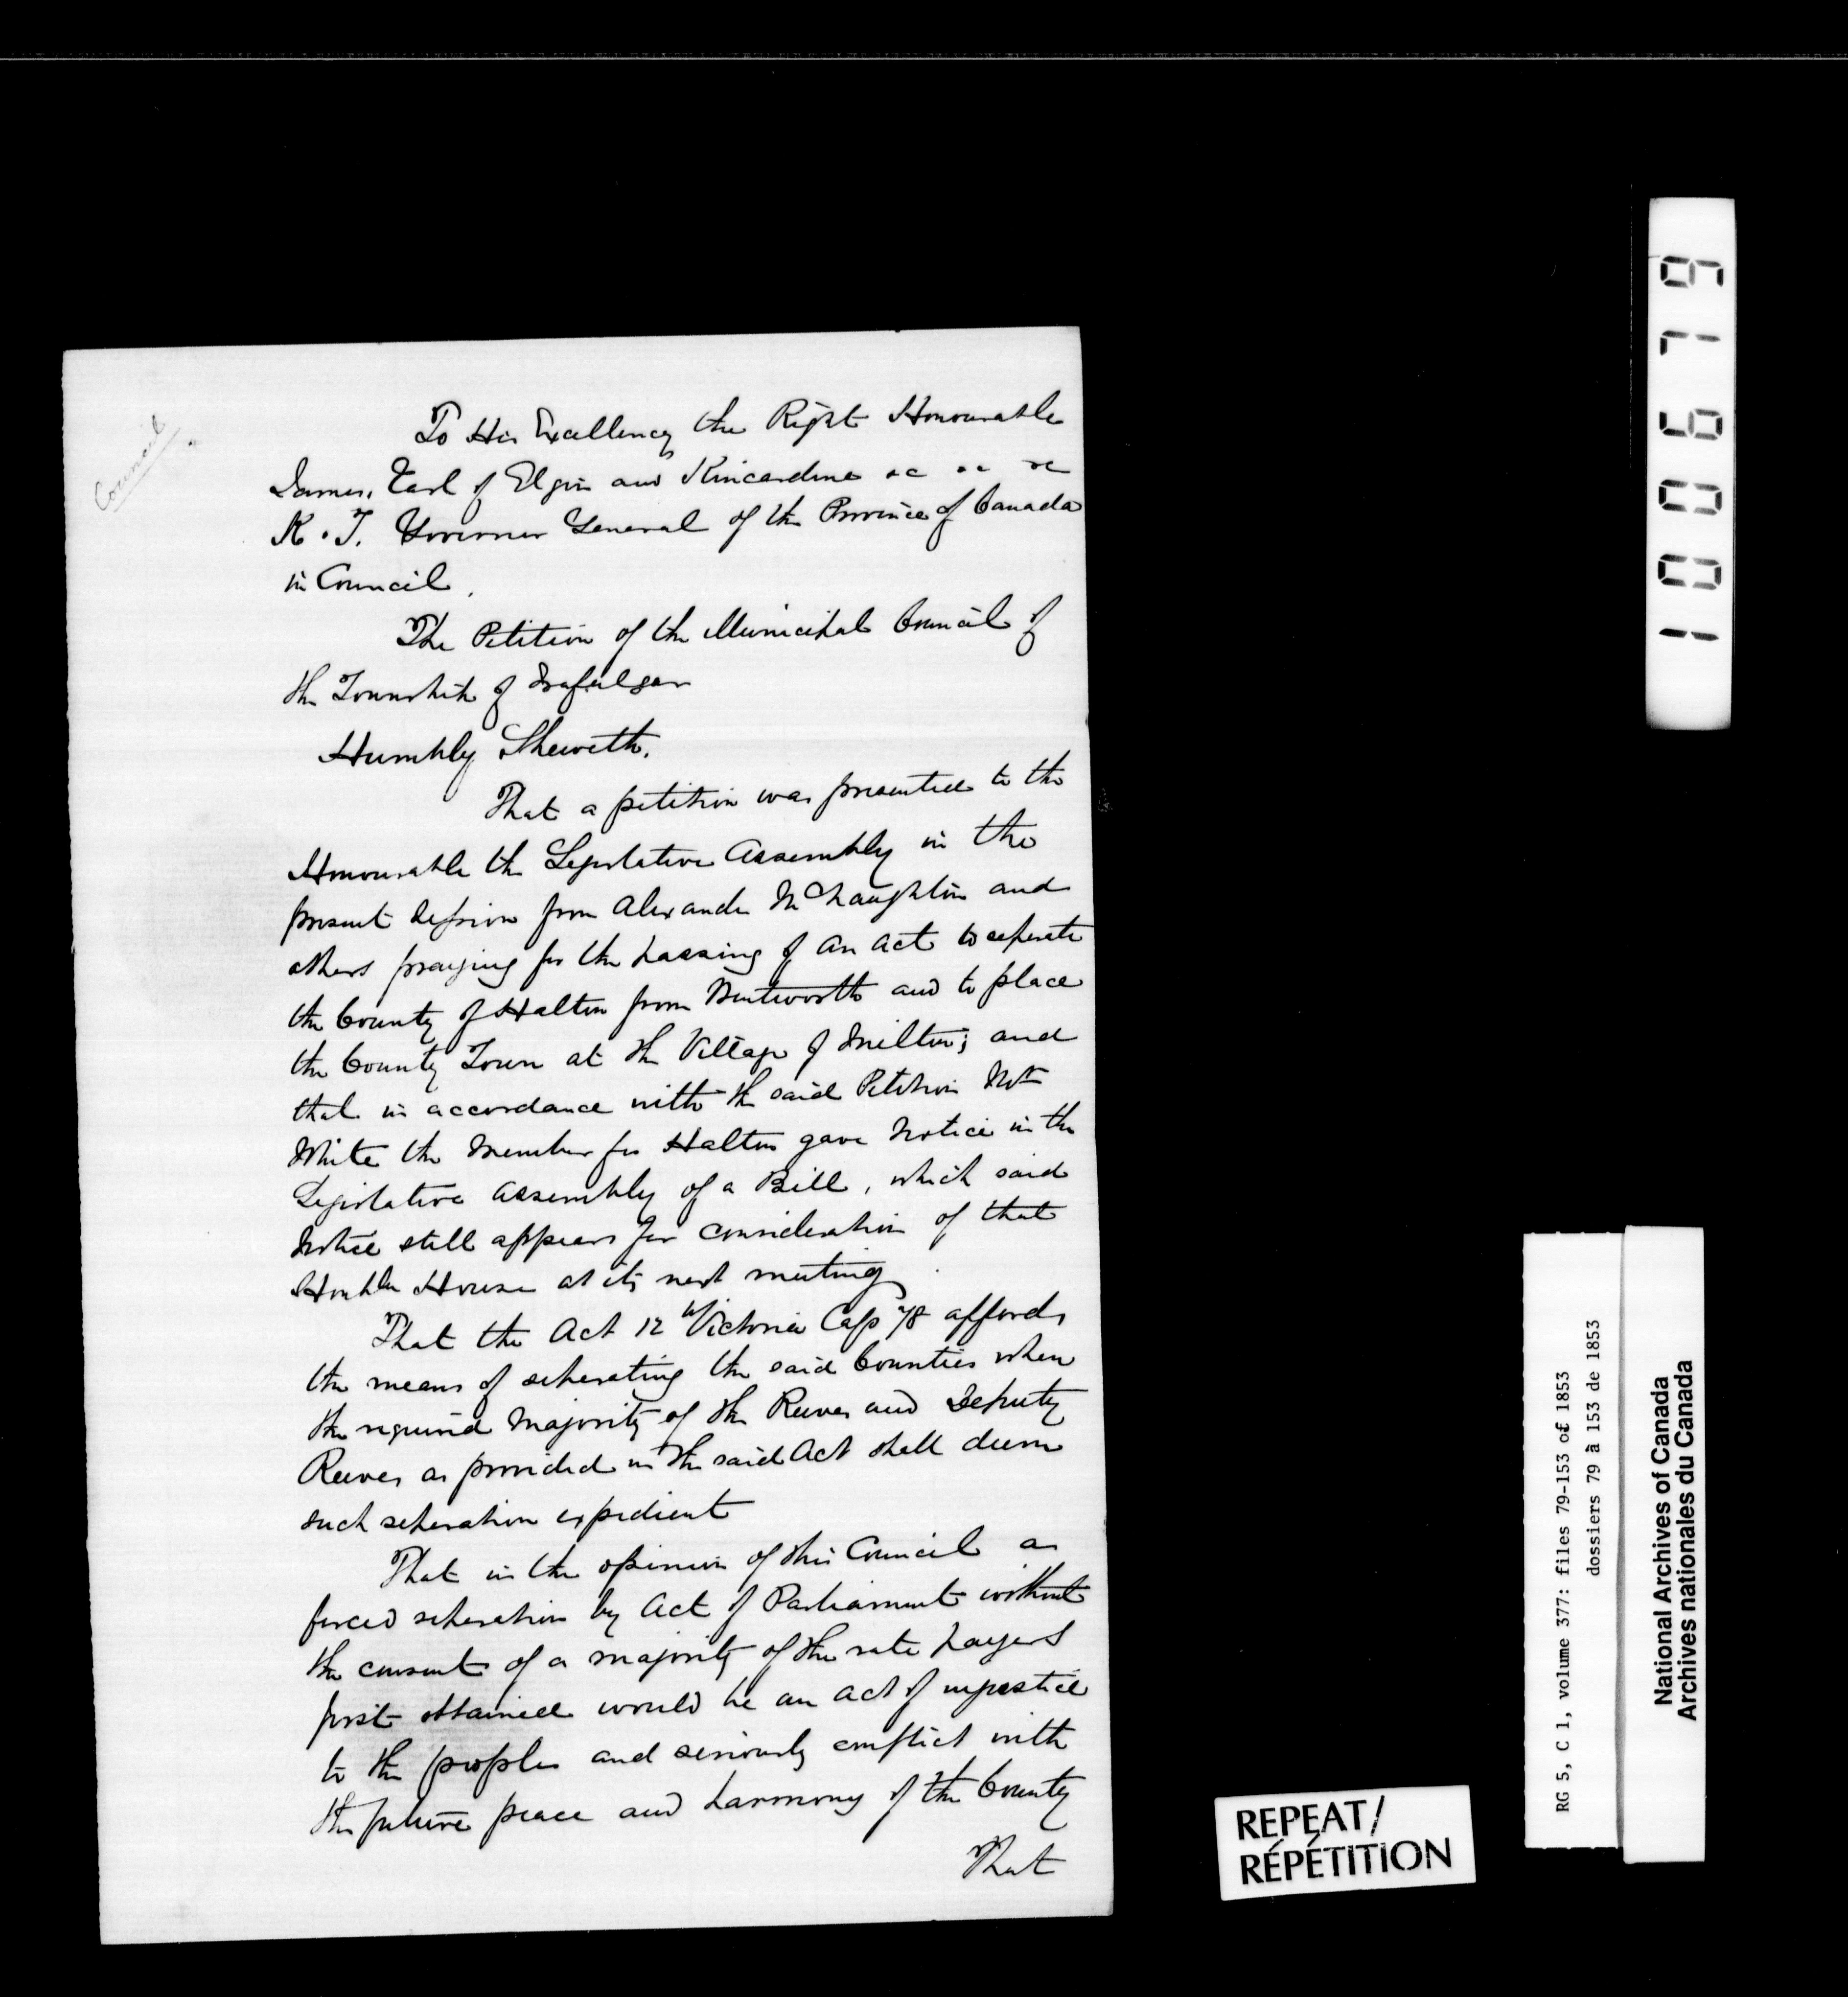 Council
To His Excellency the Right Honourable
James, Earl of Elgin and Kincardine &c &c &c
K. T. Governor General of the Province of Canada
in Council.
The Petition of the Municipal Council of
the Township of Trafalgar
Humbly Sheweth.
That a petition was presented to the
Honourable the Legislative Assembly in the
present Session from Alexander McNaughton and
others praying for the passing of an Act to seperate
the County of Halton from Wentworth and to place
the County Town at the Village of Milton; and
that in accordance with the said Petition Mr
White the Member for Halton gave Notice in the
Legislative Assembly of a Bill, which said
Notice still appears for consideration of that
Honble House at its next meeting.
That the Act 12 Victoria Cap 78 affords
the means of seperating the said Counties when
the required Majority of the Reeves and Deputy
Reeves as provided in the said Act shall deem
such seperation expedient
That in the opinion of this Council a
forced seperation by Act of Parliament without
the consent of a majority of the rate payers
first obtained would be an act of injustice
to the people and seriously conflict with
the future peace and harmony of the County
That
100679
RG 5, C 1, volume 377: files 79-153 of 1853
dossiers 79 à 153 de 1853
National Archives of Canada
Archives nationales du Canada
REPEAT/
RÉPÉTITION